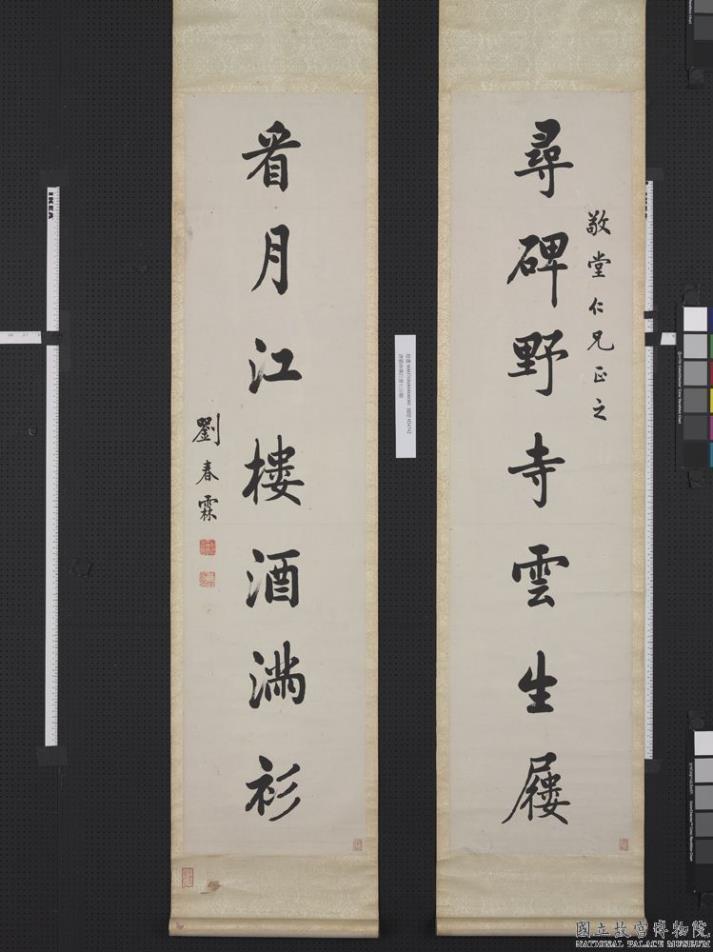 尋碑野寺雲生屨
敬堂仁兄正之
看月江樓酒滿衫
劉春霖
IKEA
國立故宮博物院
NATIONAL PALACE MUSEUM